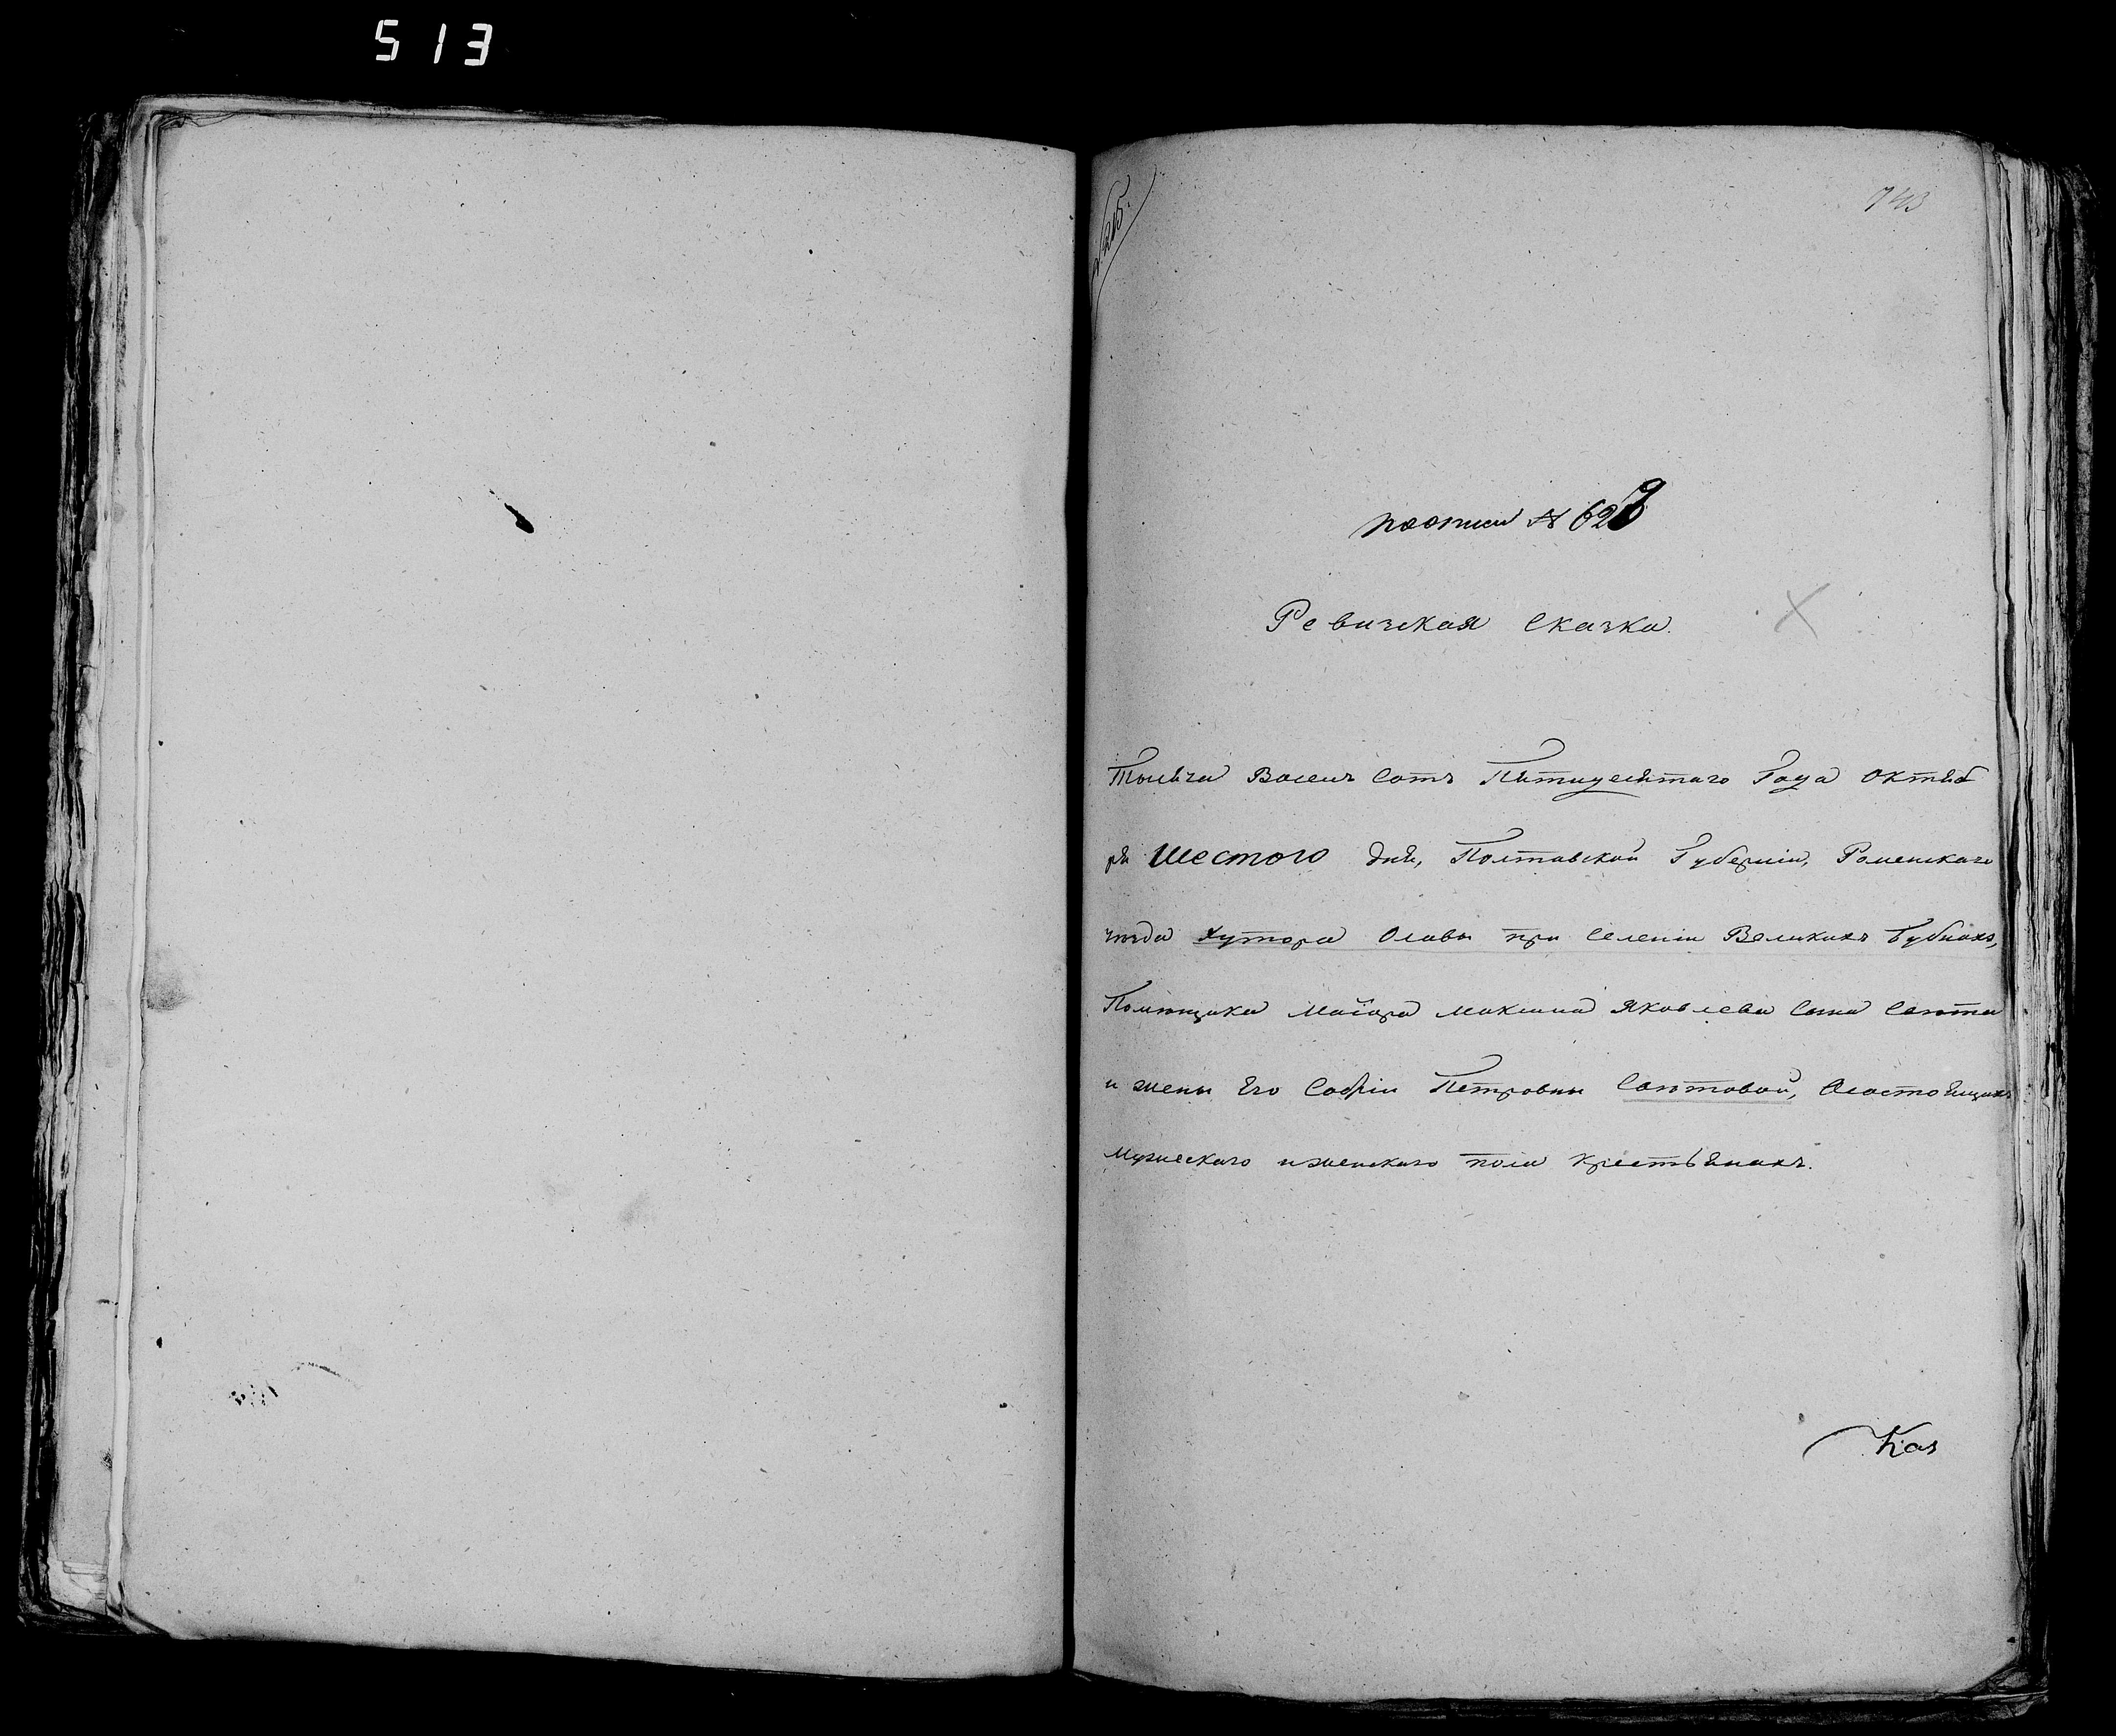 513
743
по описи № 629
Ревизская Сказка.
Тысяча Восемь Сотъ Пятидесятаго Года Октяб
ря Шестого дня, Полтавской Губерніи, Роменскаго
уѣзда Хутора Олавы при Селеніи Великихъ Бубнахъ,
Помѣщика Маіора Максима Яковлева Сына
и жены Его Софіи Петровны О состоящихъ
мужескаго и женскаго пола крестьянахъ.
Каз